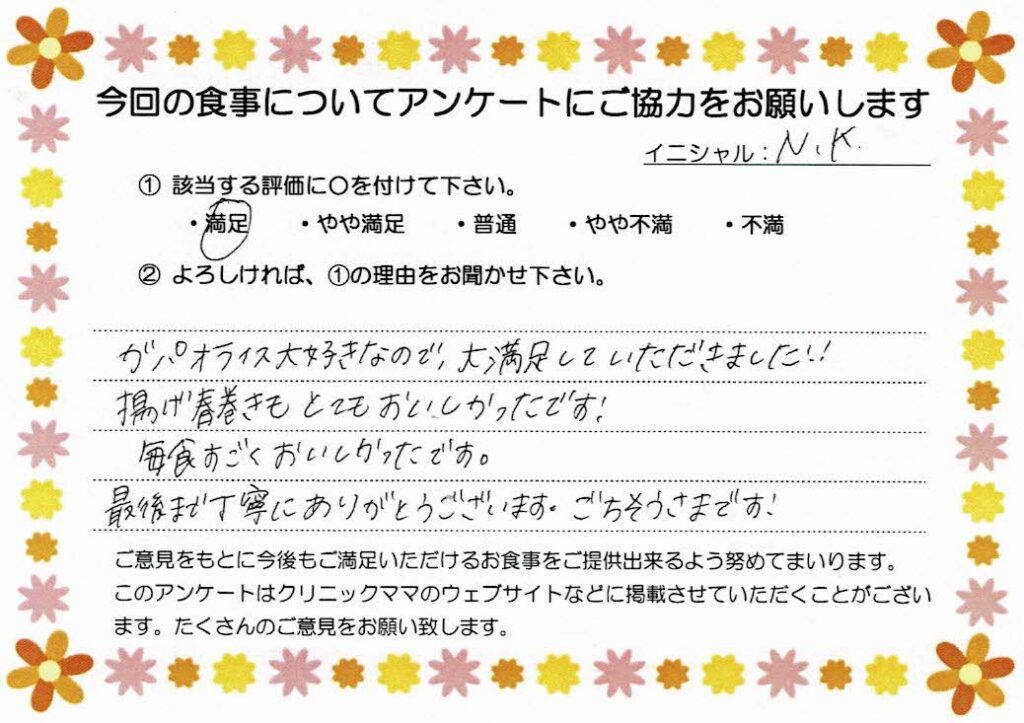 今回の食事についてアンケートにご協力をお願いします
イニシャル：N.K.
① 該当する評価に〇を付けて下さい。
・満足 ・やや満足 ・普通 ・やや不満 ・不満
② よろしければ、①の理由をお聞かせ下さい。
ガパオライス大好きなので、大満足していただきました!!
揚げ春巻きもとてもおいしかったです!
毎食すごくおいしかったです。
最後まで丁寧にありがとうございます。ごちそうさまです!
ご意見をもとに今後もご満足いただけるお食事をご提供出来るよう努めてまいります。
このアンケートはクリニックママのウェブサイトなどに掲載させていただくことがござい
ます。たくさんのご意見をお願い致します。